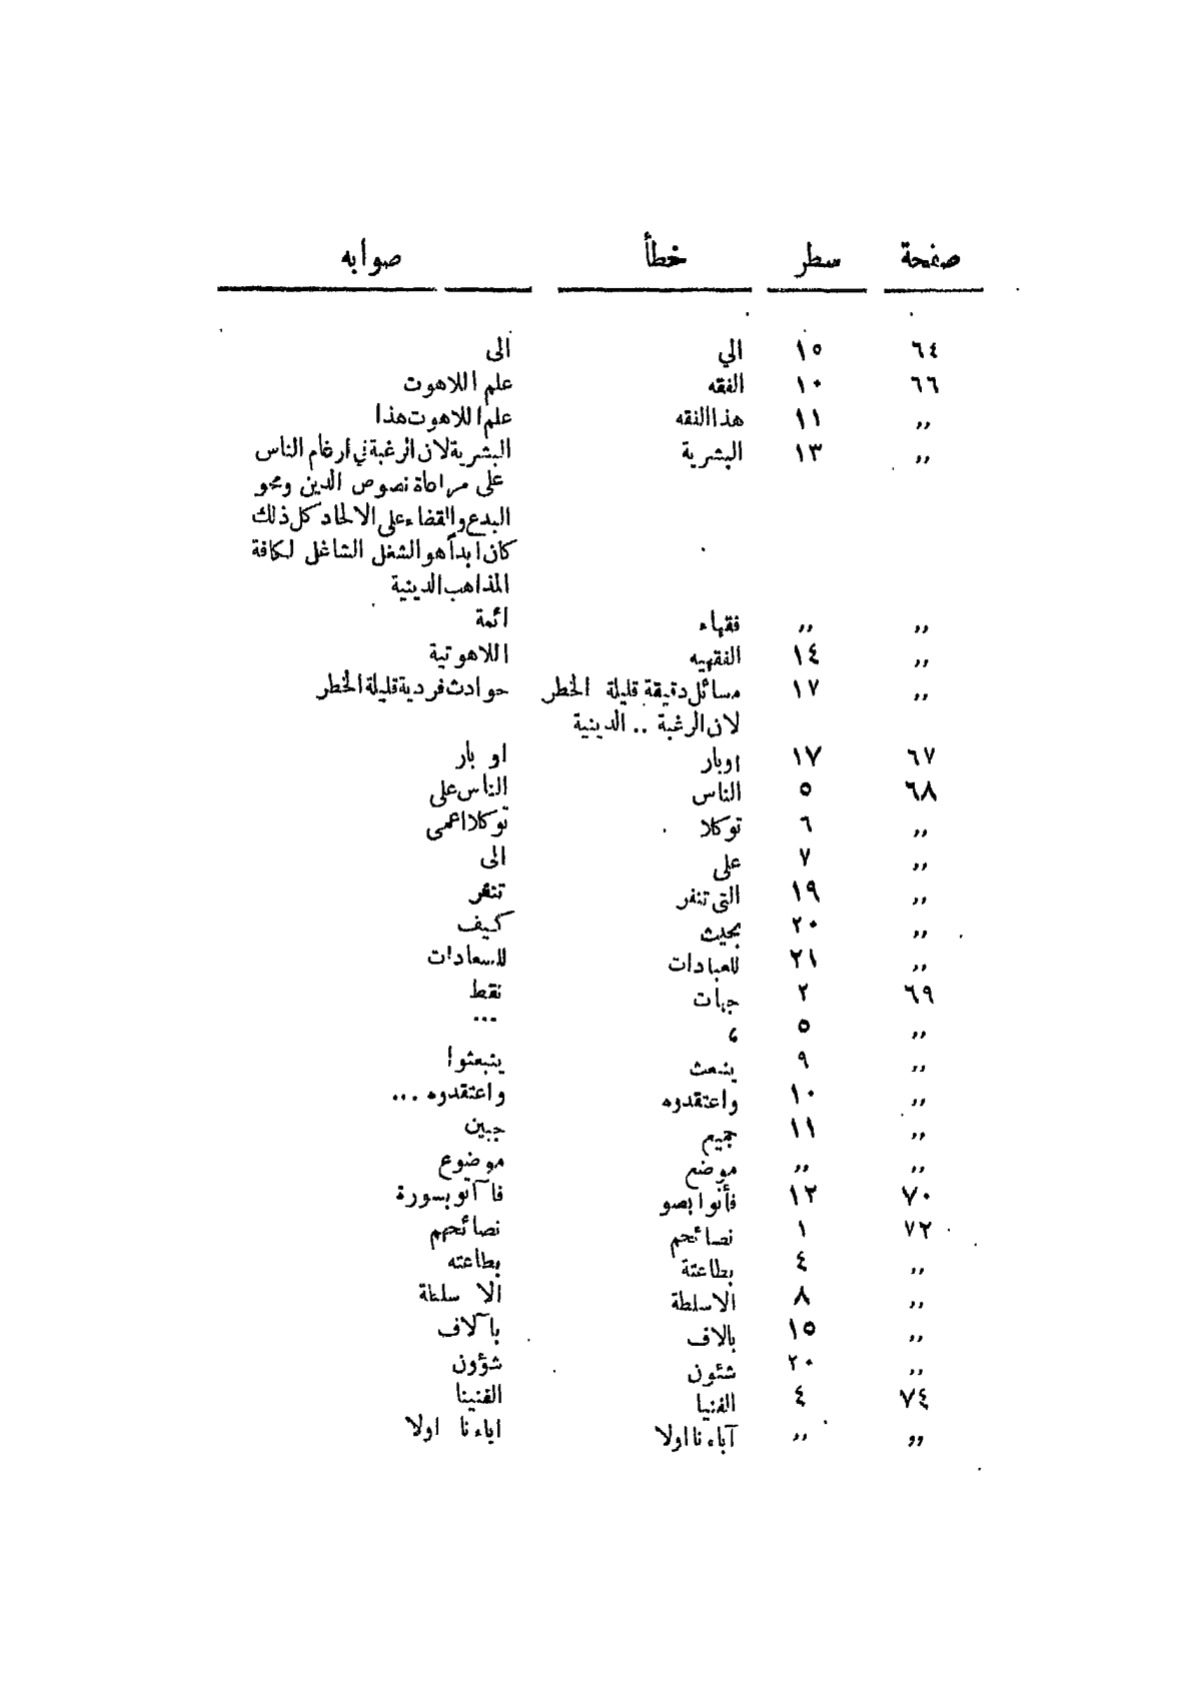 صفحة سطر خطأ صوابه
٦٤ ١٥ الي الى
٦٦ ١٠ الفقه علم اللاهوت
,, ١١ هذا الفقه علم اللاهوت هذا
,, ١٣ البشرية البشرية لان الرغبة في ارغام الناس
على مراعاة نصوص الدين ومحو
البدع والقضاء على الالحاد كل ذلك
كان ابداً هو الشغل الشاغل لكافة
المذاهب الدينية
,, ,, فقهاء ائمة
,, ١٤ الفقهيه اللاهوتية
,, ١٧ مسائل دقيقة قليلة الخطر حوادث فردية قليلة الخطر
لان الرغبة .. الدينية
٦٧ ١٧ اوبار او بار
٦٨ ٥ الناس الناس على
,, ٦ توكلا توكلا اعمى
,, ٧ على الى
,, ١٩ التى تنفر تنفر
,, ٢٠ بحيث كيف
,, ٢١ للعبادات للسعادات
٦٩ ٢ جهات نقط
,, ٥ ، ...
,, ٩ ينبعث ينبعثوا
,, ١٠ واعتقدوه واعتقدوه ...
,, ١١ جميم جبين
,, ,, موضع موضوع
٧٠ ١٢ فأنوا بصو فآ أتو بسورة
٧٢ ١ نصائحم نصائحهم
,, ٤ بطاعتة بطاعته
,, ٨ الاسلطة الا سلطة
,, ١٥ بالاف بآلاف
,, ٢٠ شئون شؤون
٧٤ ٤ الفنيا الفنينا
,, ,, آباءنا اولا اباءنا اولا